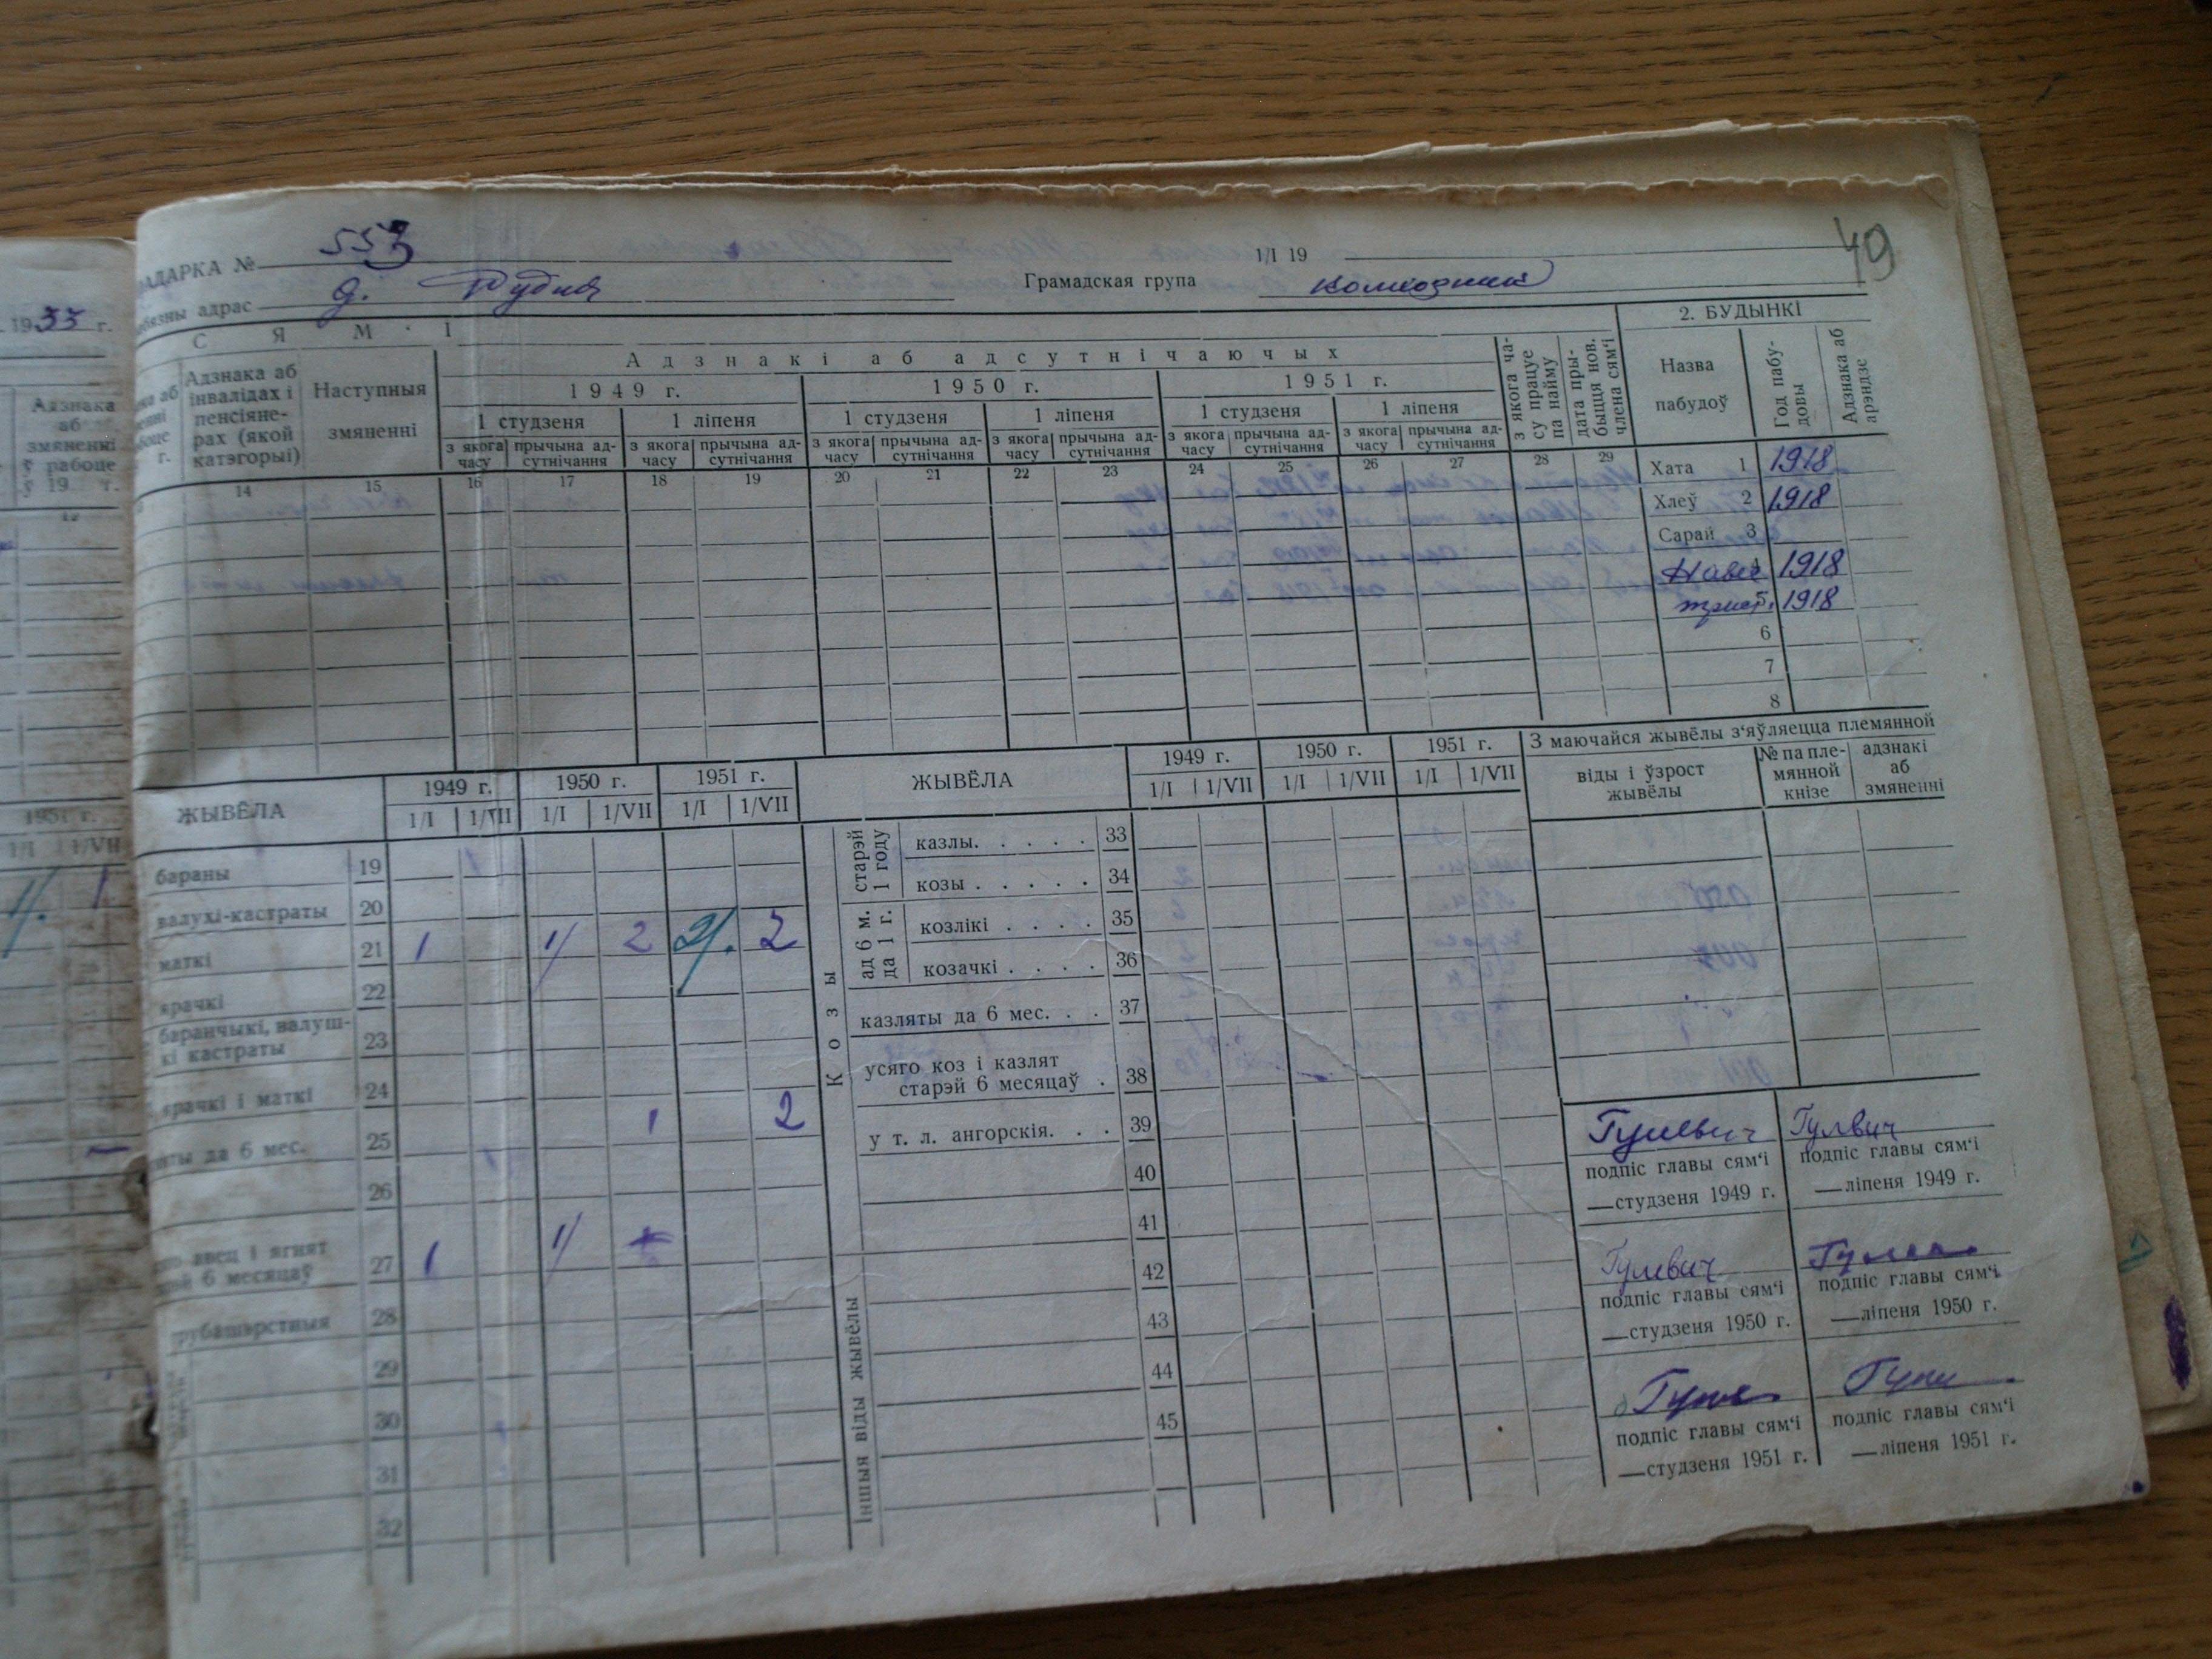 АДАРКА № 553 1/I 19
адрас д. Рудня Грамадская група колхозник
49
1933 г.
С Я М ' І
2. БУДЫНКІ
Адзнака аб змяненні ў рабоце ў 19 г.
Адзнака аб інвалідах і пенсіяне-рах (якой катэгорыі)
Наступныя змяненні
Адзнакі аб адсутнічаючых
1949 г. 1950 г. 1951 г.
1 студзеня 1 ліпеня 1 студзеня 1 ліпеня 1 студзеня 1 ліпеня
з якога часу прычына ад-сутнічання з якога часу прычына ад-сутнічання з якога часу прычына ад-сутнічання з якога часу прычына ад-сутнічання з якога часу прычына ад-сутнічання з якога часу прычына ад-сутнічання
з якога ча-су працуе па найму
дата пры-быцця нов. члена сям'і
Назва пабудоў
Год пабу-довы
Адзнака аб арэндзе
14 15 16 17 18 19 20 21 22 23 24 25 26 27 28 29
Хата 1 1918
Хлеў 2 1918
Сарай 3
Навес 1918
1918
6
7
8
ЖЫВЁЛА 1949 г. 1950 г. 1951 г.
1/I 1/VII 1/I 1/VII 1/I 1/VII
бараны 19
валухі-кастраты 20
маткі 21 1 1/ 2 2/. 2
ярачкі 22
баранчыкі, валуш-кі кастраты 23
ярачкі і маткі 24
да 6 мес. 25 1 2
26
авец і ягнят
6 месяцаў 27 1 1/
28
29
30
31
32
ЖЫВЁЛА 1949 г. 1950 г. 1951 г.
1/I 1/VII 1/I 1/VII 1/I 1/VII
Козы
старэй 1 году
казлы. . . . . 33
козы . . . . . 34
ад 6 м. да 1 г.
козлікі . . . . 35
козачкі . . . . 36
казляты да 6 мес. . . 37
усяго коз і казлят
старэй 6 месяцаў . 38
у т. л. ангорскія. . . 39
Іншыя віды жывёлы
40
41
42
43
44
45
З маючайся жывёлы з'яўляецца племянной
віды і ўзрост жывёлы
№ па пле-мянной кнізе
адзнакі аб змяненні
Гулевич Гулвич
подпіс главы сям'і подпіс главы сям'і
—студзеня 1949 г. —ліпеня 1949 г.
Гулевич
подпіс главы сям'і подпіс главы сям'і
—студзеня 1950 г. —ліпеня 1950 г.
подпіс главы сям'і подпіс главы сям'і
—студзеня 1951 г. —ліпеня 1951 г.